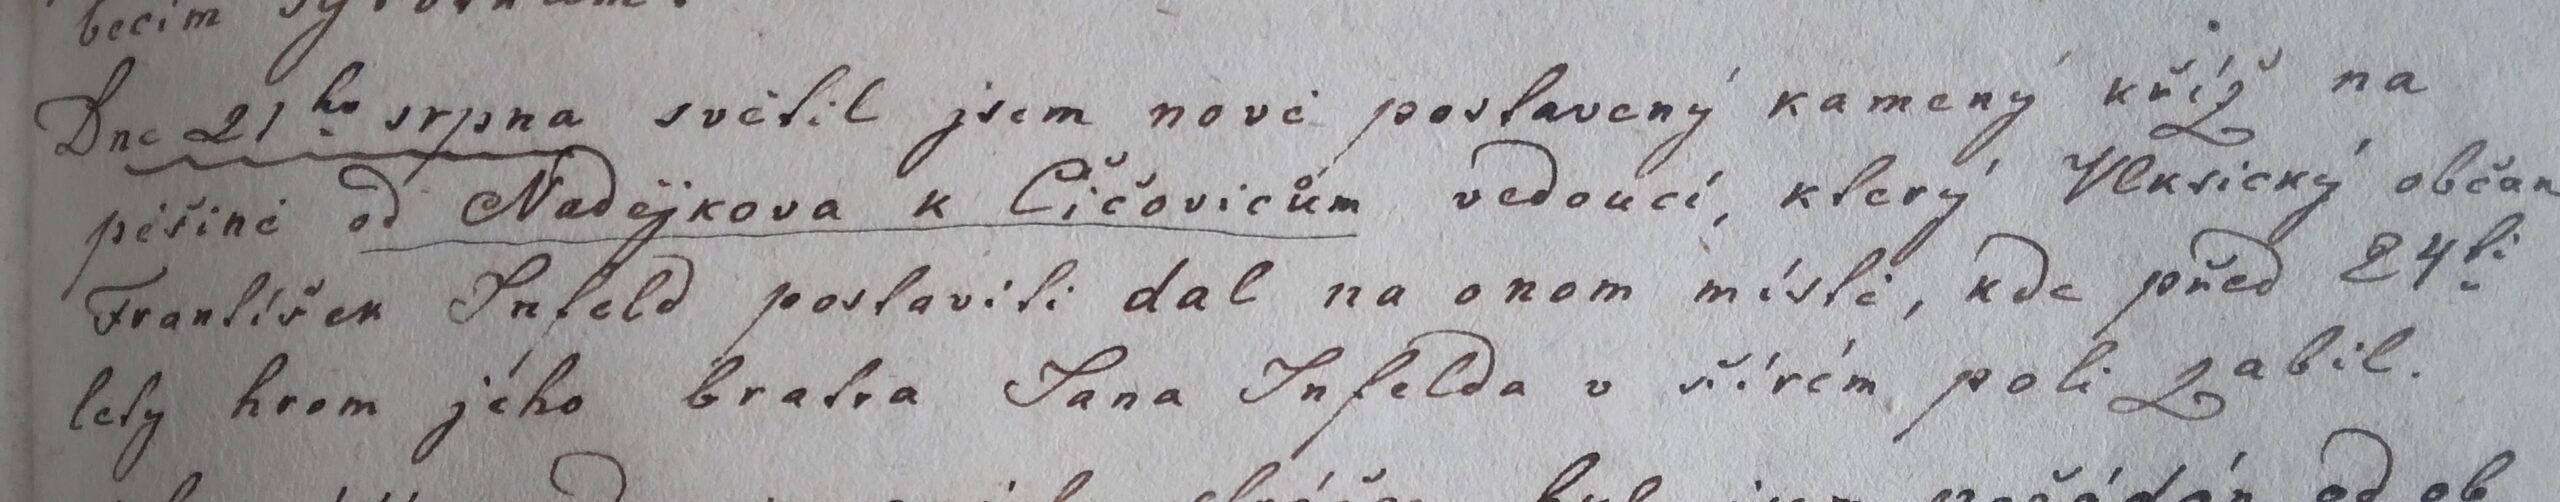 becím
Dne 21ho srpna světil jsem nově postavený kamený kříž na
pěšině od Nadějkova k Čičovicům vedoucí, který Vlksický občan
František Infeld postaviti dal na onom místě, kde před 24ti
lety hrom jeho bratra Jana Infelda v šírém poli zabil.